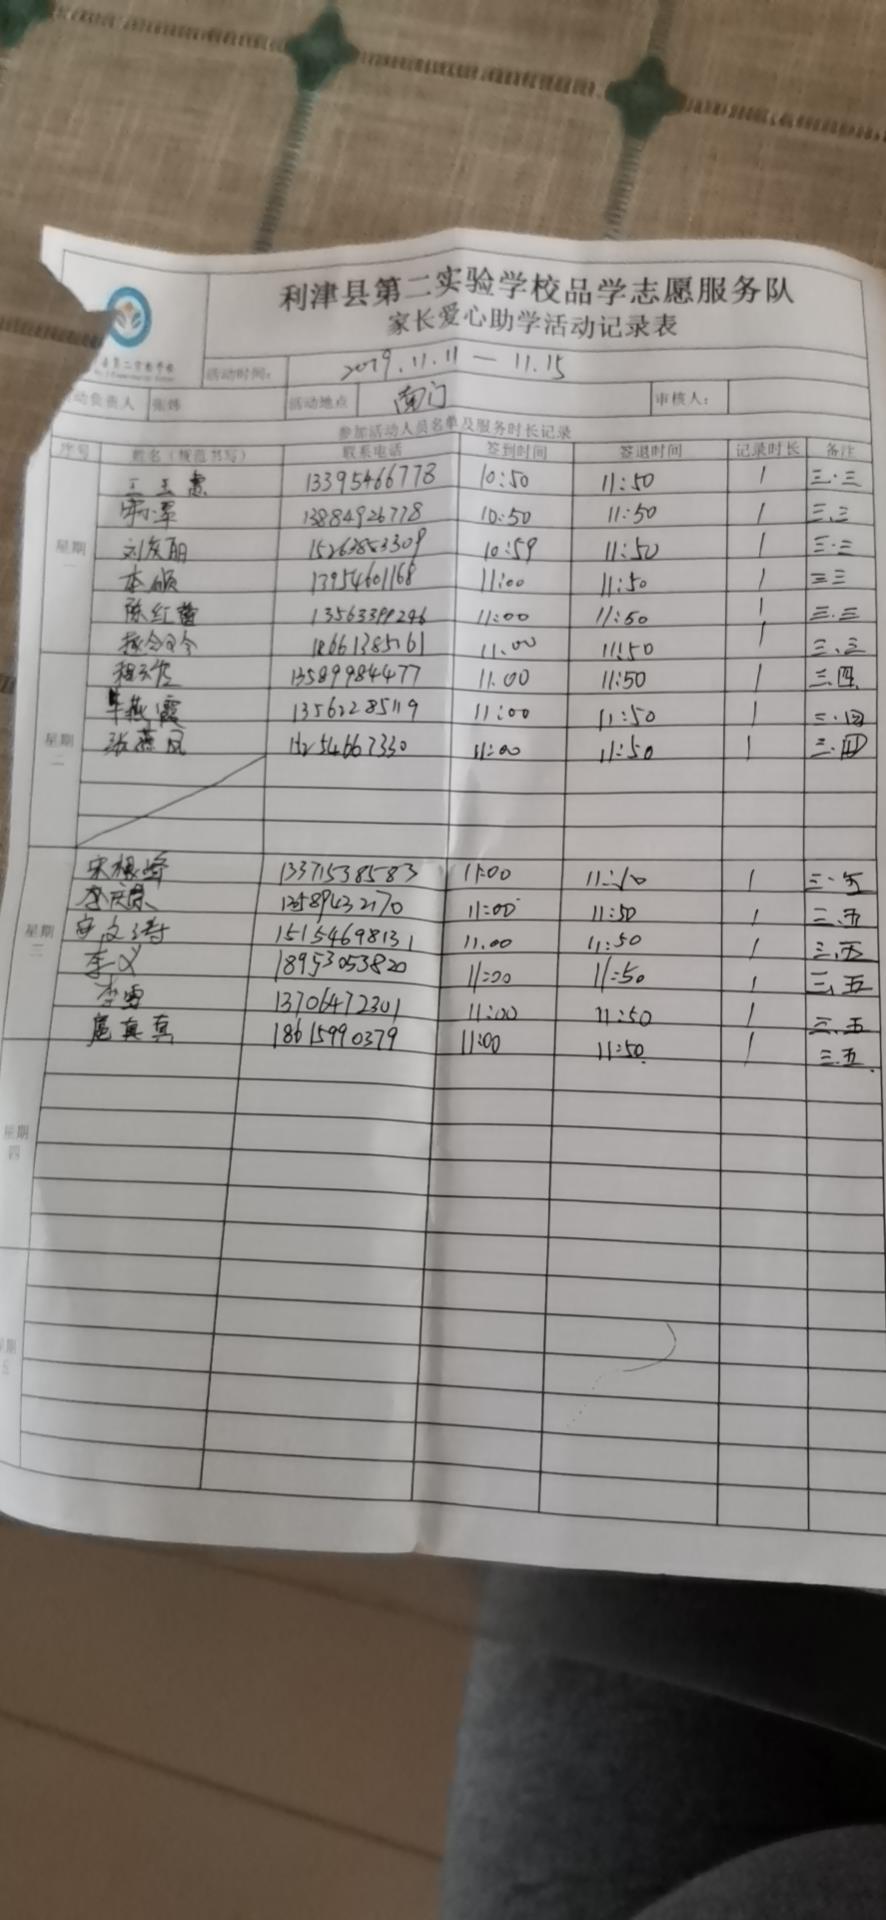 利津县第二实验学校品学志愿服务队
家长爱心助学活动记录表
县第二实验学校
活动时间： 2019.11.11 — 11.15
活动负责人 张炜 活动地点 南门 审核人：
参加活动人员名单及服务时长记录
序号 姓名（规范书写） 联系电话 签到时间 签退时间 记录时长 备注
星期一
13395466778 10:50 11:50 1 三.三
13884926778 10:50 11:50 1 三.三
刘友丽 15263853309 10:59 11:50 1 三.三
13954601168 11:00 11:50 1 三三
陈红蕾 13563399246 11:00 11:50 1 三.三
11:00 11:50 1 三.三
星期二
13589984477 11:00 11:50 1 三.四
牟燕霞 13562285119 11:00 11:50 1 三.四
张燕凤 11:00 11:50 1 三.四
星期三
宋根峰 13371538583 11:00 1 三.五
李庆泉 13589432170 11:00 11:50 1 三.五
15154698131 11:00 11:50 1 三.五
李义 18953053820 11:00 11:50 1 三.五
李雪 13706472301 11:00 11:50 1 三.五
扈真真 18615990379 11:00 11:50 1 三.五
星期四
星期五